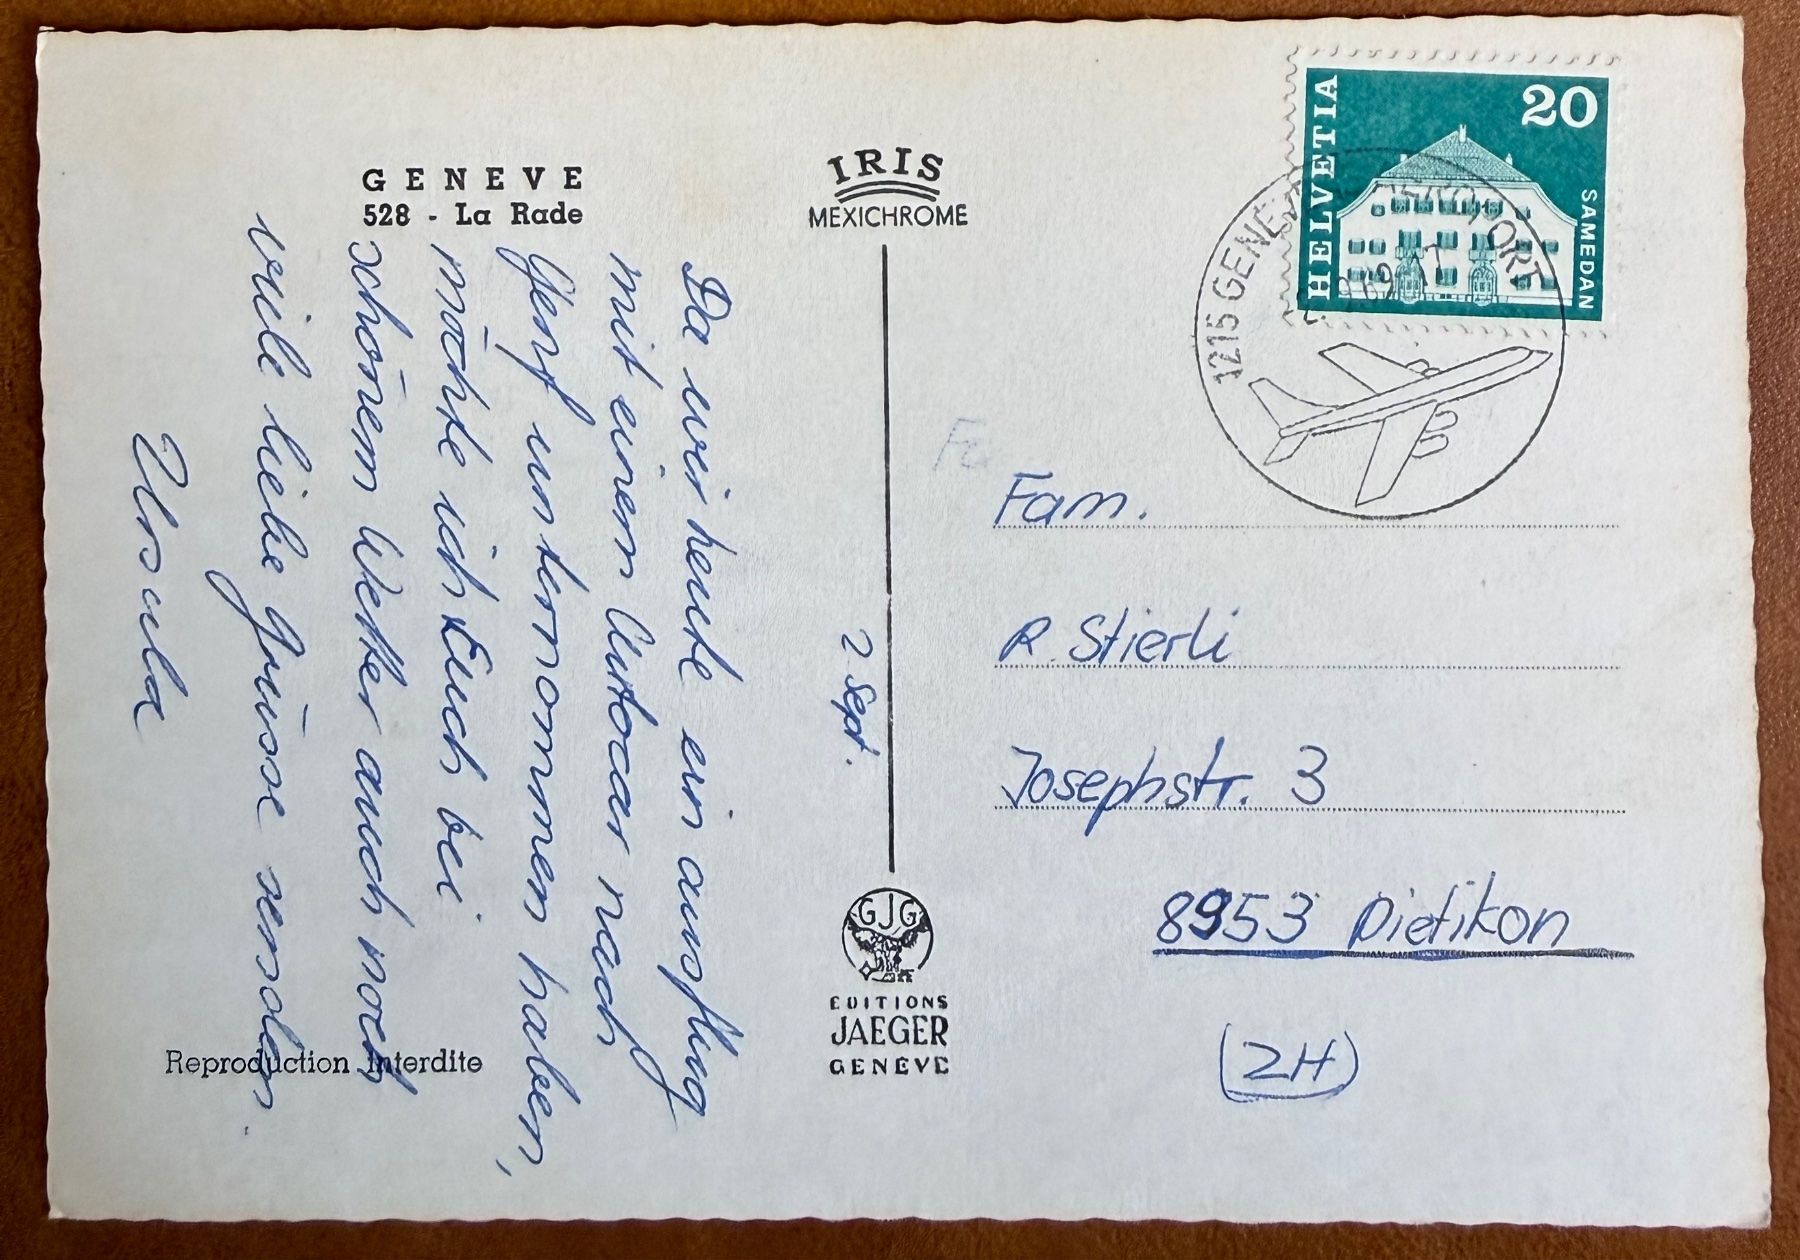 GENEVE
528 - La Rade
IRIS
MEXICHROME
Da wir heute ein ausflug
mit einem Autocar nach
Genf unternommen haben,
möchte ich Euch bei
schönem Wetter auch noch
viele liebe Grüsse senden.
Ursula
2 Sept.
GJG
EDITIONS
JAEGER
GENEVE
Reproduction interdite
HELVETIA
20
SAMEDAN
1215 GENEVE
Fa
Fam.
R. Stierli
Josephstr. 3
8953 Dietikon
(ZH)